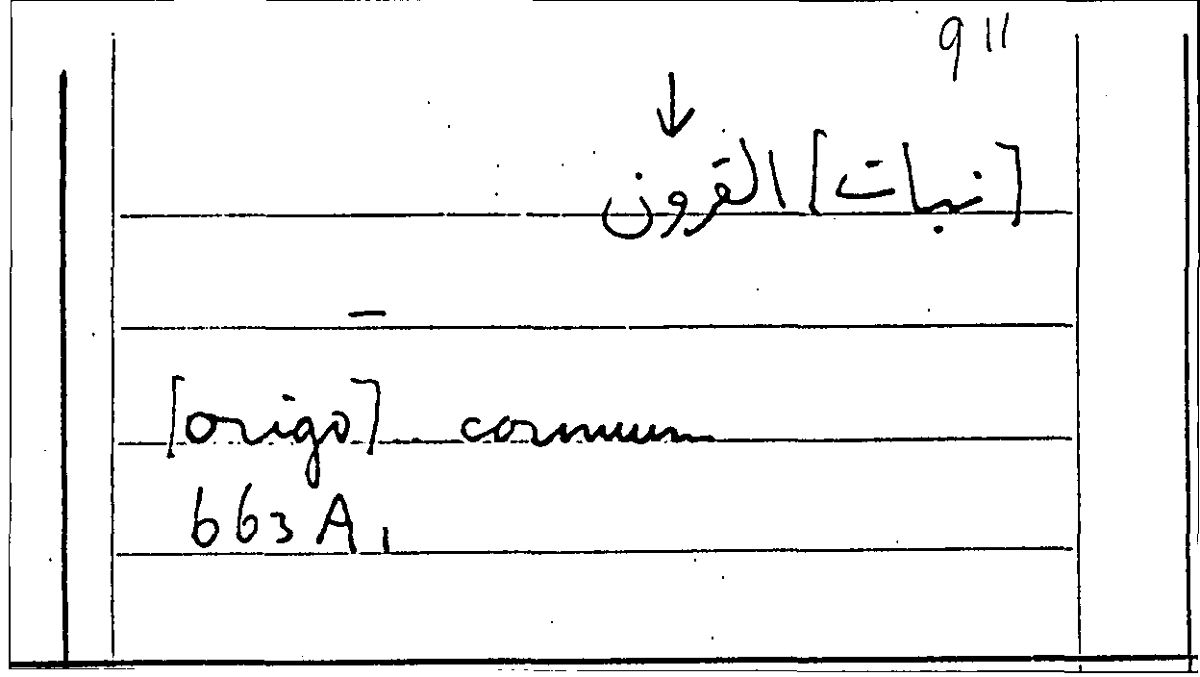 911
↓
[نبات] القرون
–
[origo] cornuum
663 A 1